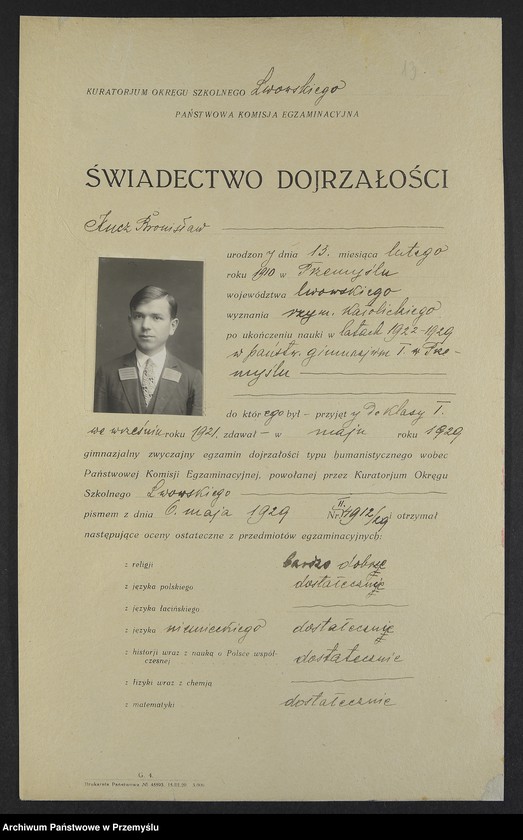 13
KURATORJUM OKRĘGU SZKOLNEGO Lwowskiego
PAŃSTWOWA KOMISJA EGZAMINACYJNA
ŚWIADECTWO DOJRZAŁOŚCI
Kucz Bronisław
urodzony dnia 13. miesiąca lutego
roku 1910 w Przemyślu
województwa lwowskiego
wyznania rzym. katolickiego
po ukończeniu nauki w latach 1922-1929
w państw. gimnazjum I. w Prze-
myślu
do którego był – przyjęty do klasy I.
we wrześniu roku 1921, zdawał – w maju roku 1929
gimnazjalny zwyczajny egzamin dojrzałości typu humanistycznego wobec
Państwowej Komisji Egzaminacyjnej, powołanej przez Kuratorjum Okręgu
Szkolnego Lwowskiego
pismem z dnia 6. maja 1929 Nr. II. 1912/29 i otrzymał
następujące oceny ostateczne z przedmiotów egzaminacyjnych:
z religji bardzo dobrze
z języka polskiego dostatecznie
z języka łacińskiego
z języka niemieckiego dostatecznie
z historji wraz z nauką o Polsce współ-
czesnej dostatecznie
z fizyki wraz z chemją
z matematyki dostatecznie
G. 4.
Drukarnia Państwowa
Archiwum Państwowe w Przemyślu